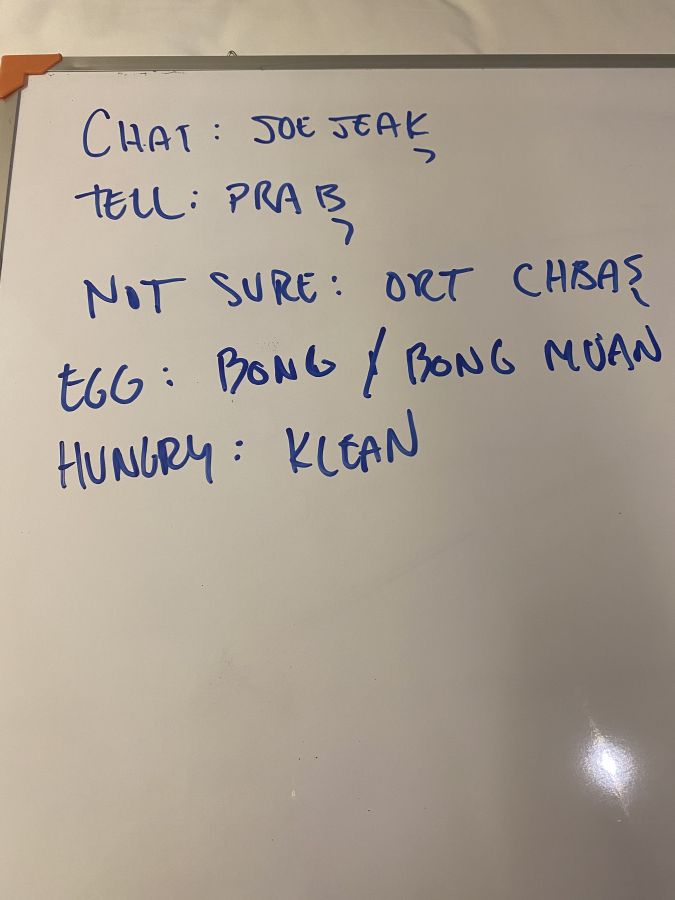 CHAT: JOE JEAK,
TELL: PRAB,
NOT SURE: ORT CHBAS,
EGG: BONG / BONG MOAN
HUNGRY: KLEAN